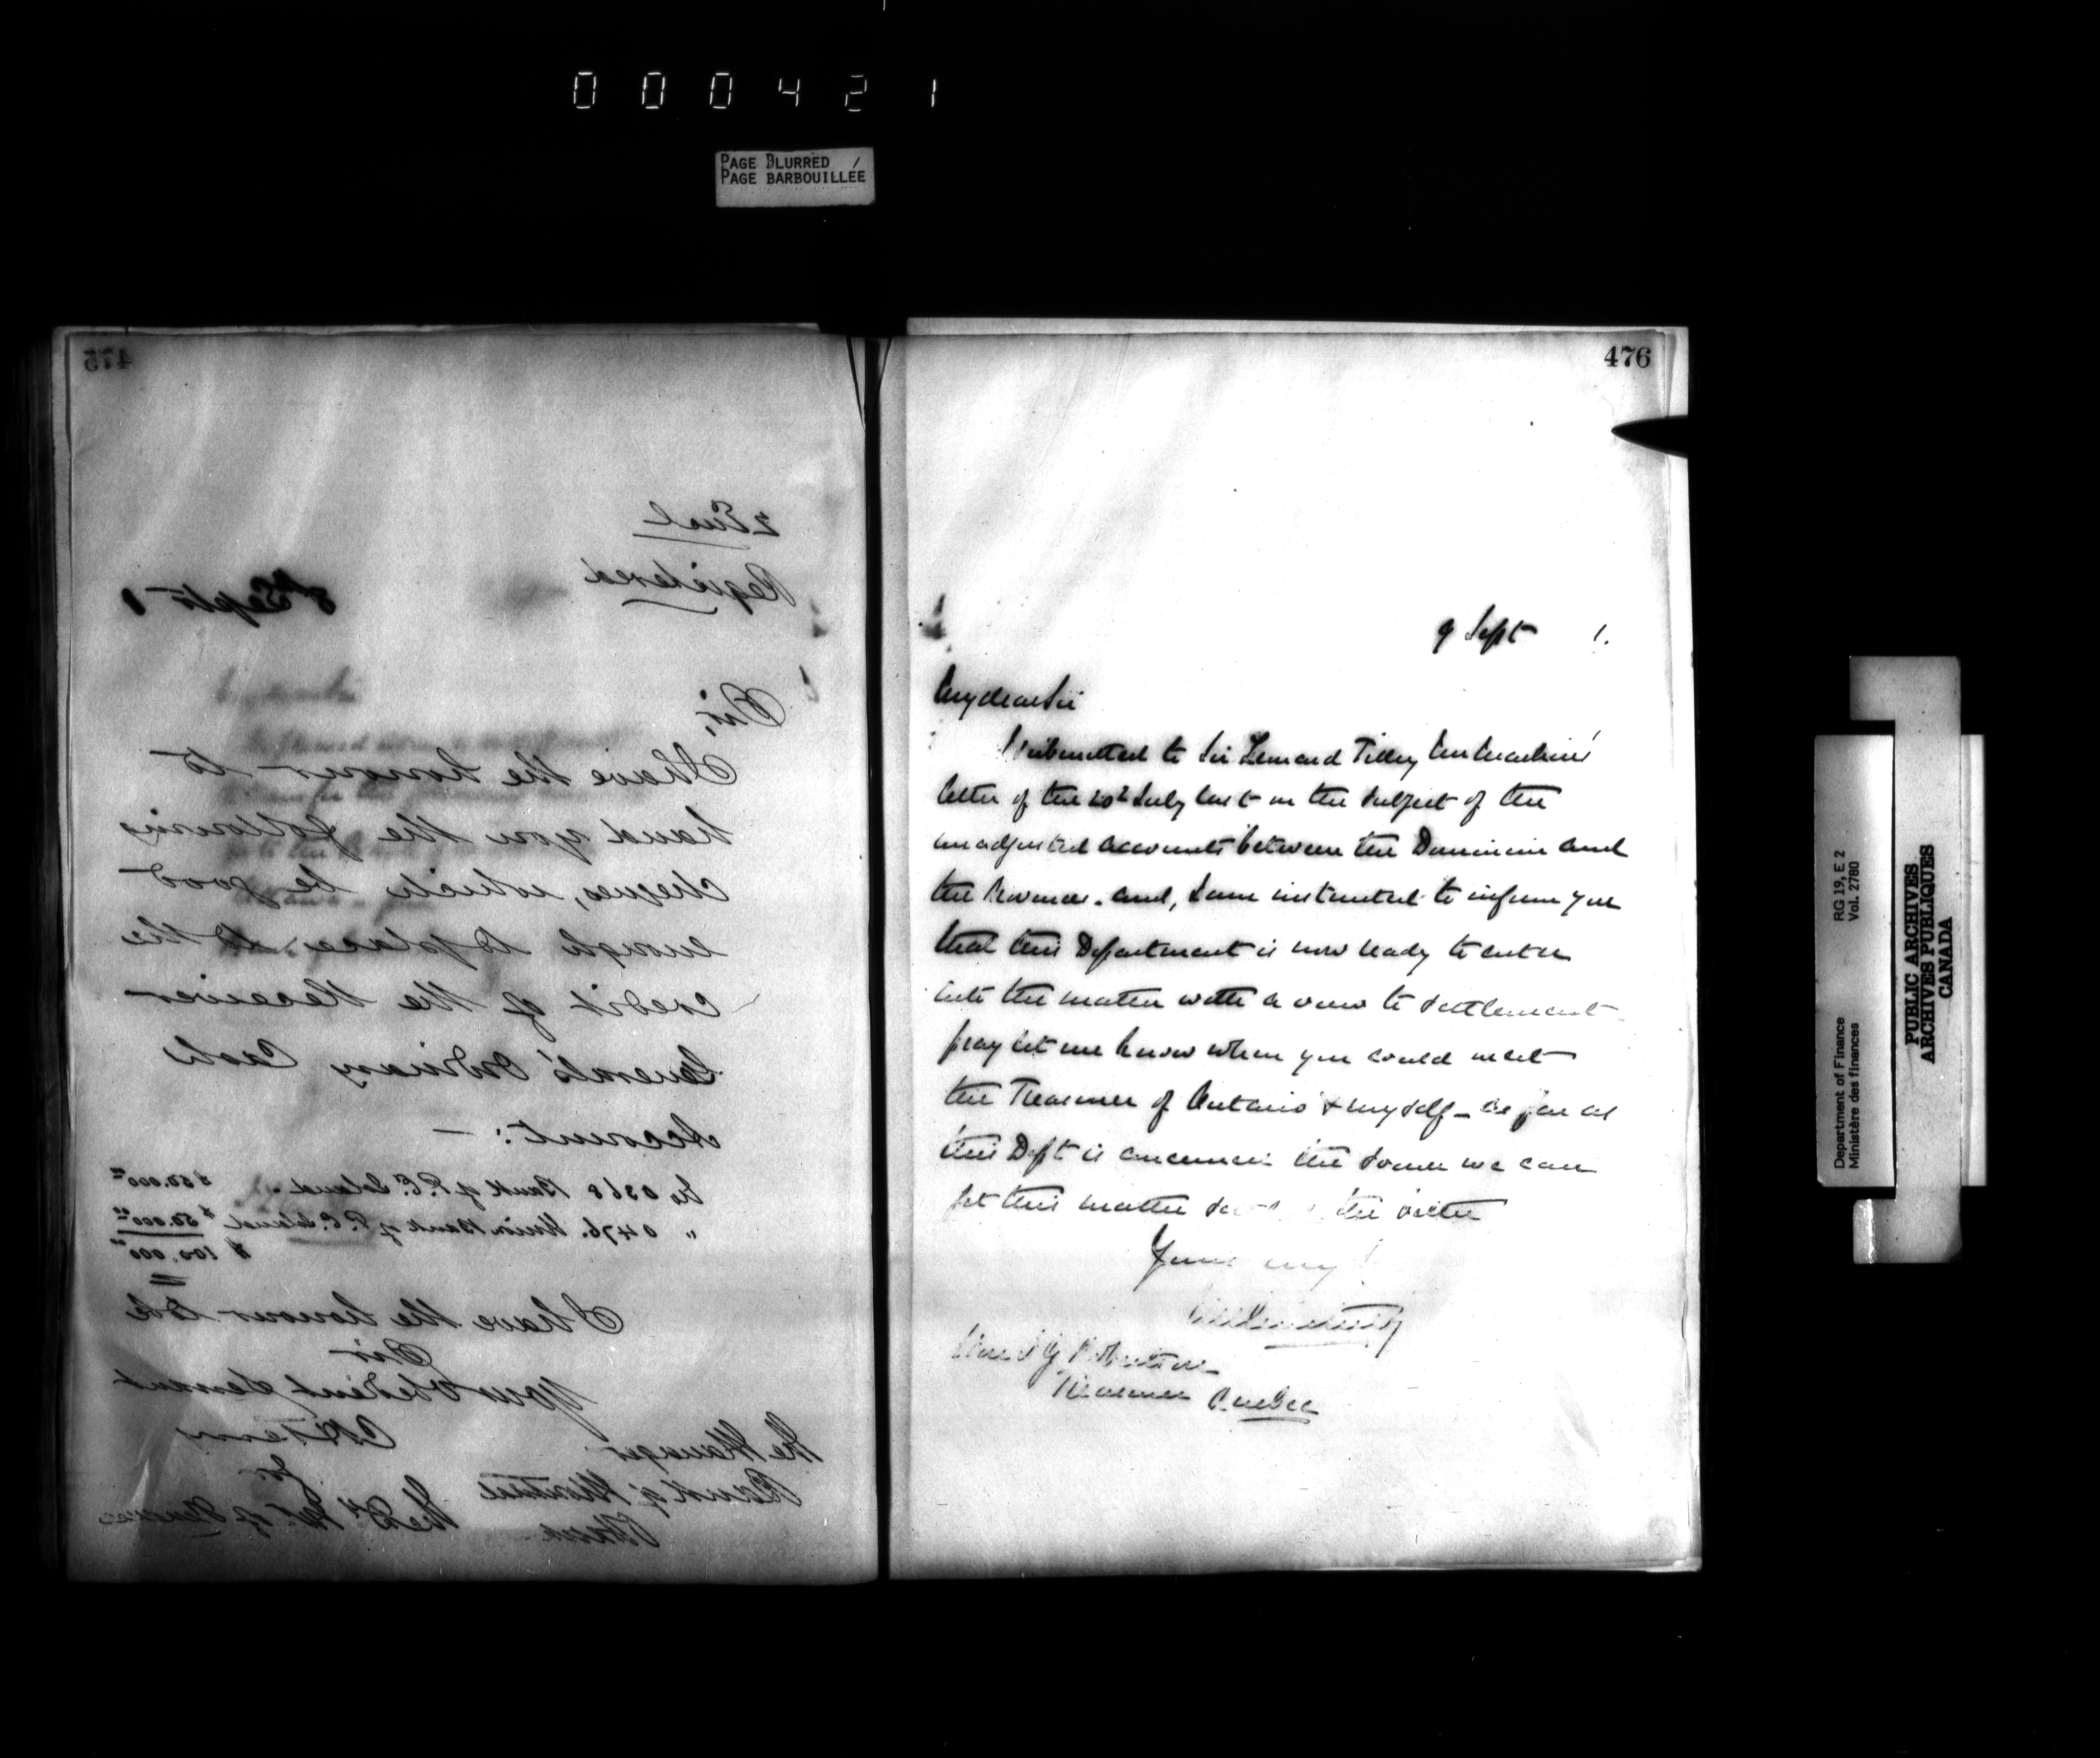 000421
PAGE BLURRED
PAGE BARBOUILLÉE
475
2 Encl
Registered
8 Septr 1
Sir,
I have the honour to
hand you the following
cheques, which be good
enough to place to the
credit of the Receiver
General's Ordinary Cash
Account: —
No 0368 Bank of P. E. Island. $50.000.00
" 0476. Union Bank of P. E. Island $50.000.00
$100.000.00
I have the honour to be
Sir
Your obedient Servant
for
The Dy Min. of Finance
The Manager
Bank of Montreal
Ottawa
476
9 Sept 1.
My dear Sir
I submitted to Sir Leonard Tilley Mr Machin's
letter of the 20th July last on the subject of the
unadjusted accounts between the Dominion and
the Provinces. and, I am instructed to inform you
that this Department is now ready to enter
into the matter with a view to settlement
pray let me know when you could meet
the Treasurer of Ontario & myself – as far as
this Dept is concerned the sooner we can
get this matter the better
Yours
Honble J G Robertson
Treasurer Quebec
Department of Finance RG 19, E 2
Ministère des finances Vol. 2780
PUBLIC ARCHIVES
ARCHIVES PUBLIQUES
CANADA